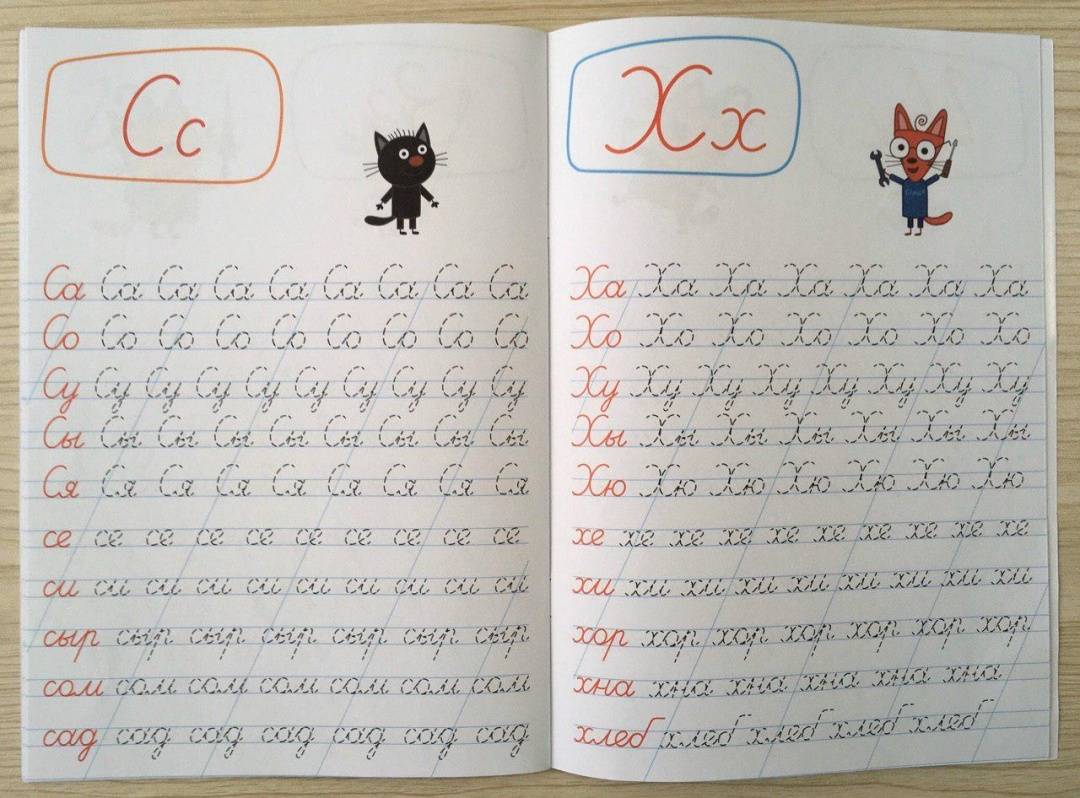 Сс
Са Са Са Са Са Са Са Са Са
Со Со Со Со Со Со Со Со Со
Су Су Су Су Су Су Су Су Су Су
Сы Сы Сы Сы Сы Сы Сы Сы Сы
Ся Ся Ся Ся Ся Ся Ся Ся Ся
се се се се се се се се се се
си си си си си си си си си си
сыр сыр сыр сыр сыр сыр сыр
сом сом сом сом сом сом сом
сад сад сад сад сад сад сад
Хх
Ха Ха Ха Ха Ха Ха Ха
Хо Хо Хо Хо Хо Хо Хо
Ху Ху Ху Ху Ху Ху Ху Ху
Хы Хы Хы Хы Хы Хы Хы
Хю Хю Хю Хю Хю Хю Хю
хе хе хе хе хе хе хе хе хе хе
хи хи хи хи хи хи хи хи хи
хор хор хор хор хор хор хор
хна хна хна хна хна хна
хлеб хлеб хлеб хлеб хлеб